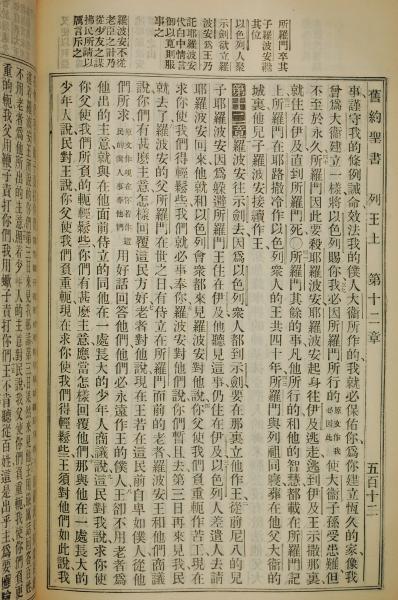 舊約聖書 列王上 第十二章 五百十二
所羅門卒其
子羅波安繼
其位
以色列人聚
示劍欲立羅
波安爲王乃
託耶羅波安
代白中情言
御以寬則服
事之
羅波安不從
老臣之計乃
從少友之謀
拂民所請以
厲言斥之
事謹守我的條例誡命效法我的僕人大衛所作的我就必保佑你爲你建立恆久的家像我
曾爲大衛建立一樣將以色列賜你我必因所羅門所行的使大衛子孫受患難但
不至於永久所羅門因此要殺耶羅波安耶羅波安起身往伊及逃走逃到伊及王示撒那裏
就住在伊及直到所羅門死○所羅門其餘的事凡他所行的和他的智慧都載在所羅門記
上所羅門在耶路撒冷作以色列衆人的王共四十年所羅門與列祖同寢葬在他父大衛的
城裏他兒子羅波安接續作王
第十二章羅波安往示劍去因爲以色列衆人都到示劍要在那裏立他作王從前尼八的兒
子耶羅波安因爲躲避所羅門王住在伊及他聽見這事仍住在伊及以色列人差遣人去請
耶羅波安回來他就和以色列會衆都來見羅波安對他說你父使我們負重軛作苦工現在
求你使我們得輕鬆些我們就必事奉你羅波安對他們說你們暫且去第三日再來見我民
就去了羅波安的父所羅門在世之日有侍立在所羅門面前的老者羅波安王和他們商議
說你們有甚麼主意怎樣回覆這民方好老者對他說現在王若在這民前自卑如僕人從他
們所求用好話回答他們他們必永遠作王的僕人王卻不用老者爲
他出的主意就與在他面前侍立的同他在一處長大的少年人商議說這民對我說求你使
你父使我們所負的軛輕鬆些你們有甚麼主意應當怎樣回覆他們那與他在一處長大的
少年人說民對王說你父使我們負重軛現在求你使我們得輕鬆些王須對他們如此說我